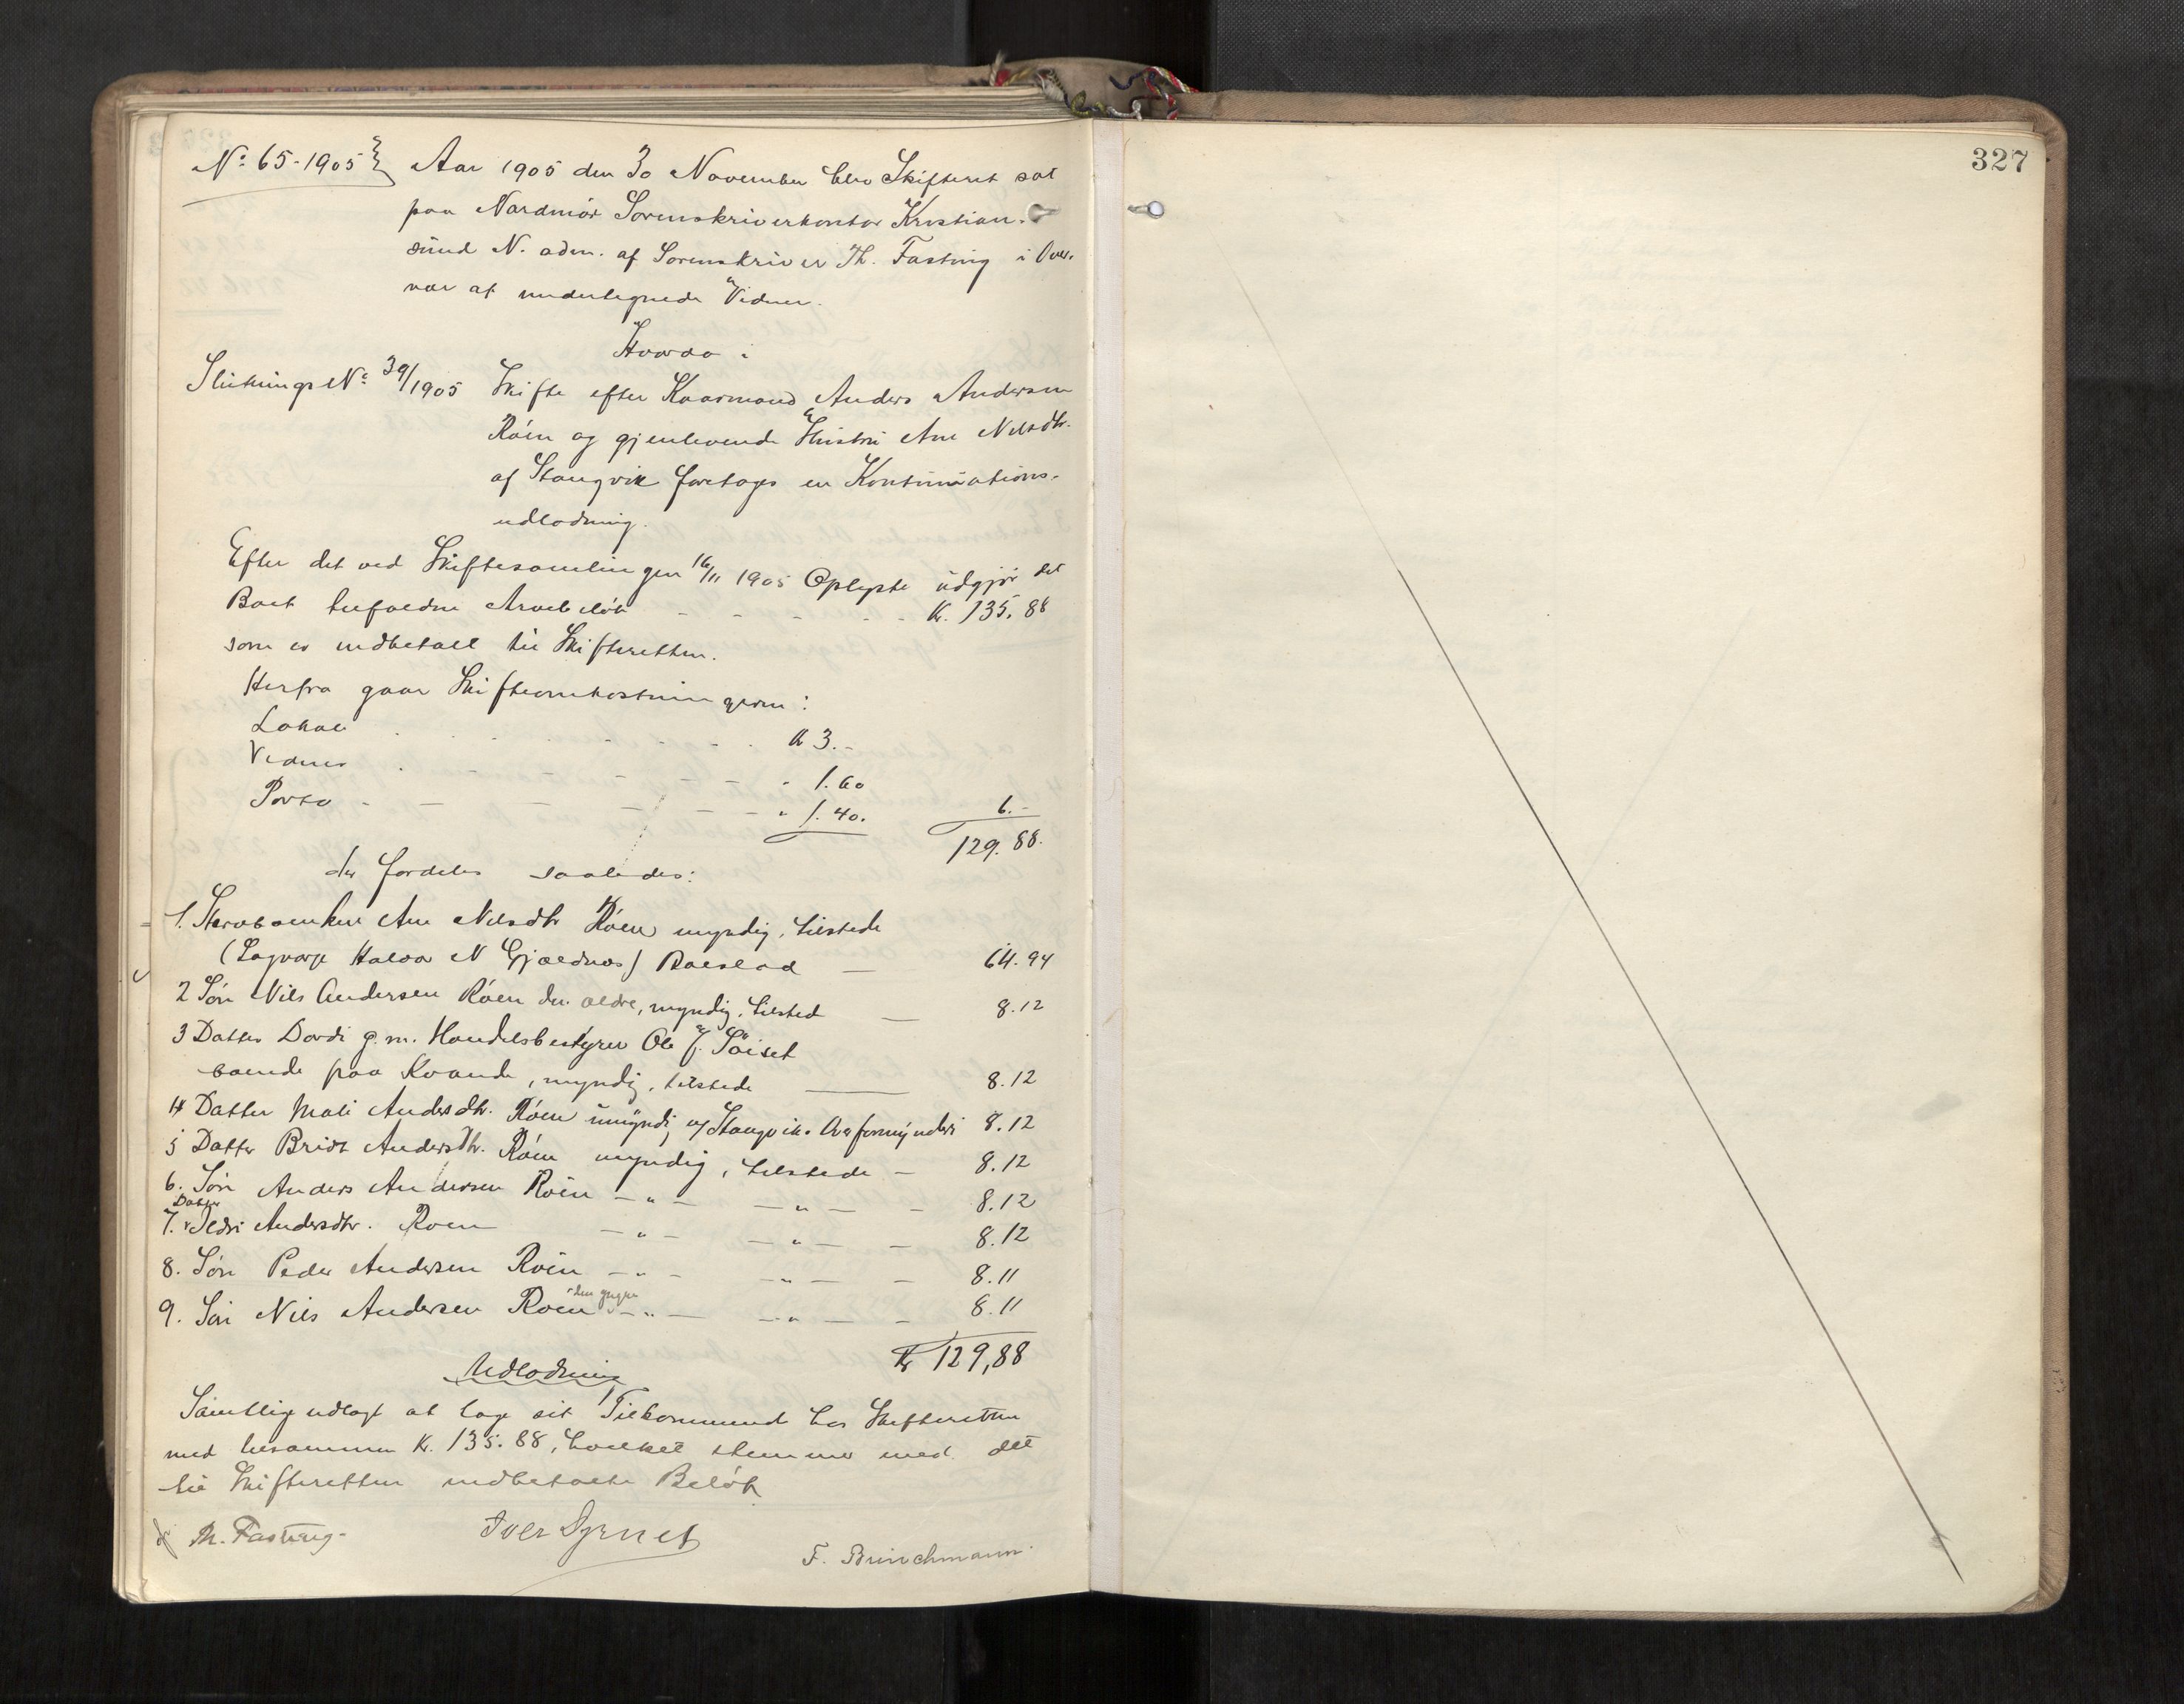 327
No 65-1905 Aar 1905 den 30 November blev Skifteret sat
paa Nordmør Sorenskriverkontor Kristian-
sund N. adm. af Sorenskriver Th. Fasting i Over-
vær af undertegnede Vidner.
Hvorda:
Slutnings No 39/1905 Skifte efter Kaarmand Anders Andersen
Röen og gjenlevende Hustru Ane Nilsdtr.
af Stangvik foretages en Kontinuations-
udlodning.
Efter det ved Skiftesamlingen 16/11 1905 Oplyste udgjør det
Boet tilfaldne Arvebeløb - - - - - Kr. 135.88
som er indbetalt til Skifteretten.
Herfra gaar Skifteomkostningerne:
Lokale . . . . . K 3.-
Vidner . - - - - - " 1.60
Porto - - - - - - " 1.40. 6.-
129.88.
der fordeles saaledes:
1. Stervboenken Ane Nilsdtr Röen myndig, tilstede
(Lagværge Halvor N Gjeldnes) Boeslod — 64.94
2 Søn Nils Andersen Röen den ældre, myndig, tilsted — 8.12
3 Datter Dordi g. m. Handelsbestyrer Ole J. Søiset
boende paa Kvande, myndig, tilstede — 8.12
4 Datter Mali Andersdtr. Röen umyndig u/ Stangvik Overformynderi 8.12
5 Datter Bridt Andersdtr. Röen myndig, tilstede - 8.12
6. Søn Anders Andersen Röen — " — — " — - 8.12
Datter
7. Sedri Andersdtr. Roen — " — — " — - 8.12
8. Søn Peder Andersen Roen — " — — " — - 8.11
den yngre
9. Søn Nils Andersen Roen — " — — " — - 8.11
Kr 129,88
Udlodning
Samtlige udlagt at tage sit Tilkommende hos Skifteretten
med tilsammen Kr. 135.88, hvilket stemmer med det
til Skifteretten indbetalte Beløb
Th. Fasting. Iver F. Brinchmann.